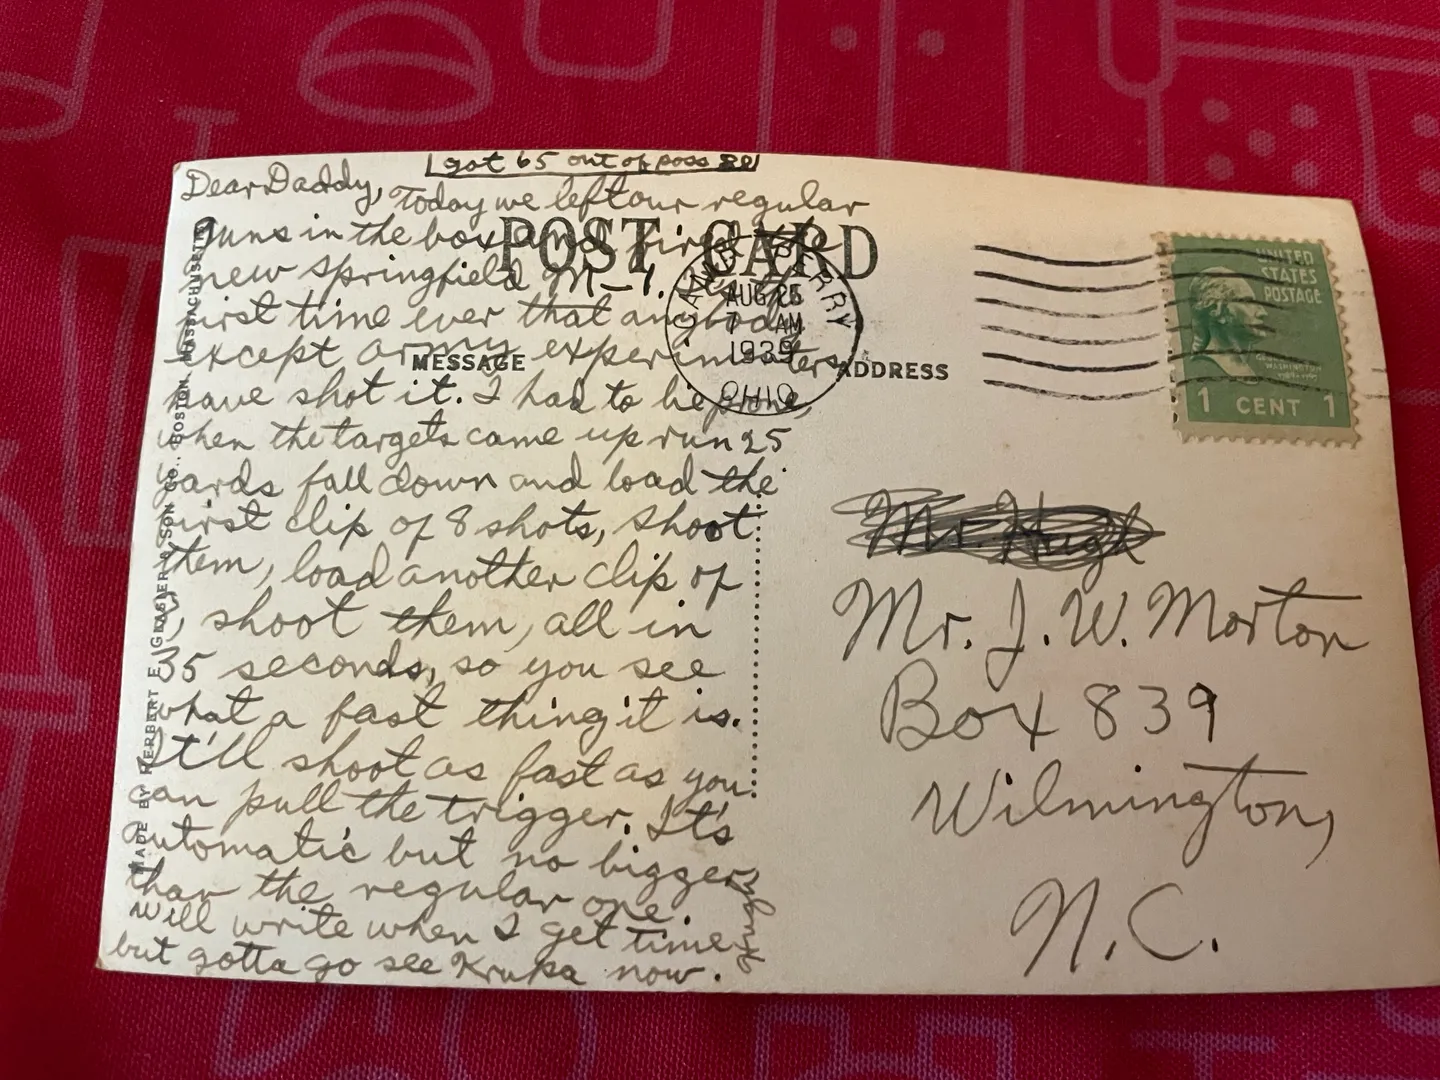 got 65 out of poss 80
Dear Daddy, Today we left our regular
guns in the box and fired the
new Springfield M-1.
first time ever that anybody
except army experimenters
have shot it. I had to be prone,
when the targets came up run 25
yards fall down and load the
first clip of 8 shots, shoot
them, load another clip of
8, shoot them, all in
35 seconds, so you see
what a fast thing it is.
It'll shoot as fast as you
can pull the trigger. It's
automatic but no bigger
than the regular one.
Will write when I get time
but gotta go see Krupa now.
POST CARD
MESSAGE
ADDRESS
MADE BY HERBERT E. GLASIER & SON CO., BOSTON, MASSACHUSETTS
CAMP PERRY
AUG 25
7 AM
1939
OHIO
UNITED
STATES
POSTAGE
GEORGE
WASHINGTON
1 CENT 1
Mr Hugh
Mr. J. W. Morton
Box 839
Wilmington,
N.C.